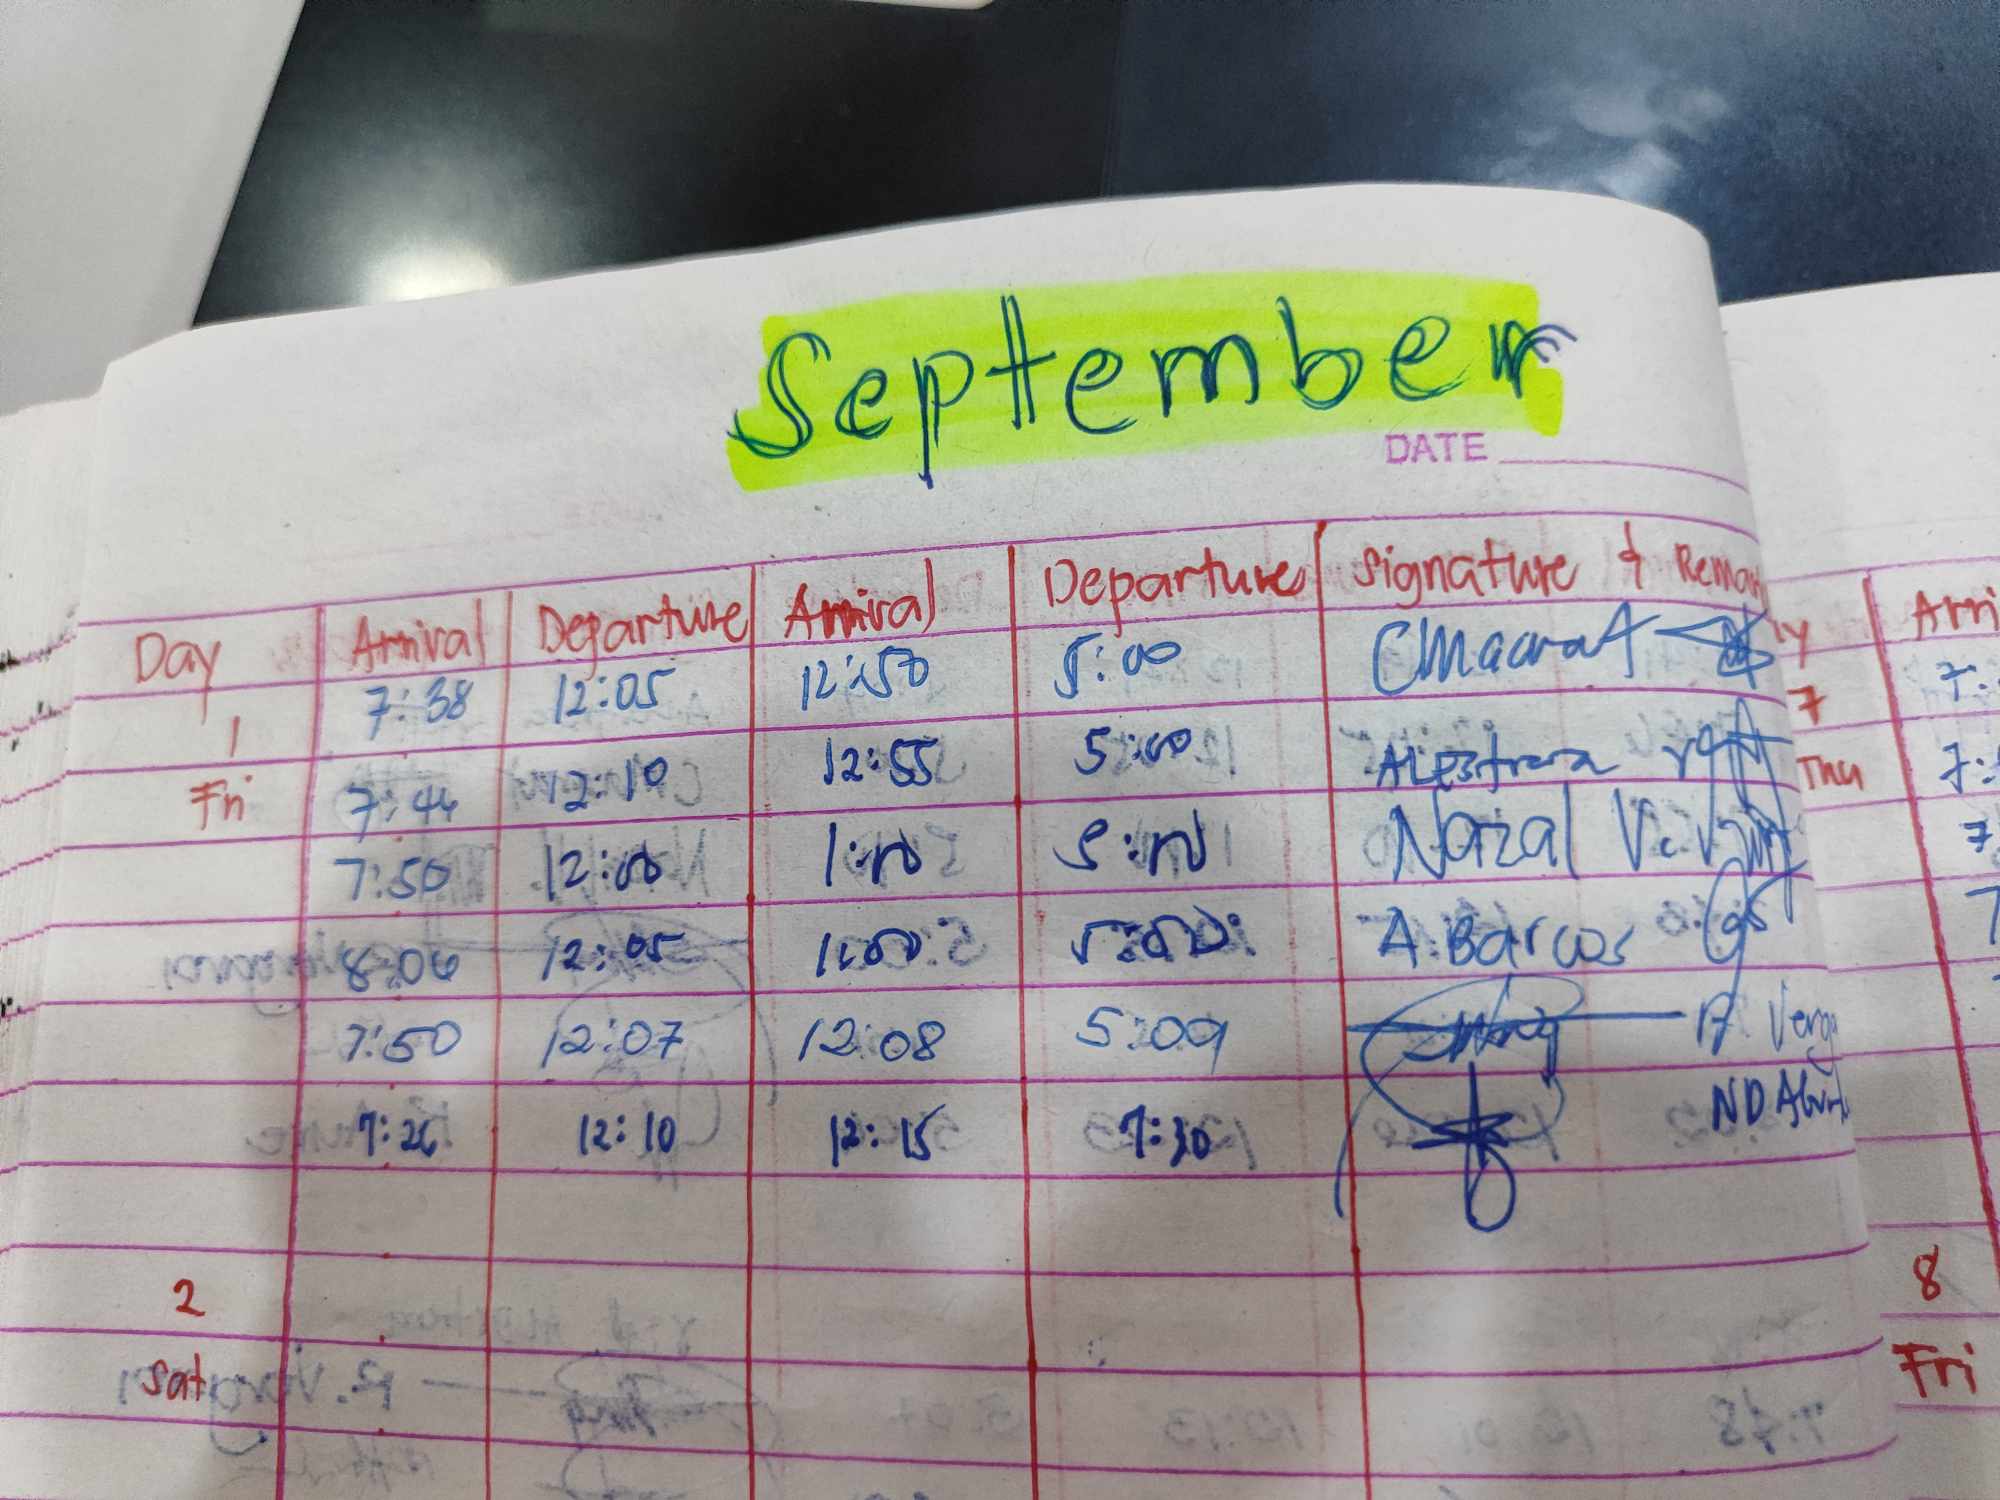 September
DATE
Day Arrival Departure Arrival Departure Signature & Remar
1 7:38 12:05 12:50 5:00 CMacrat
Fri 7:44 12:10 12:55 5:00 Alestrera
7:50 12:00 1:00 5:00 Nazal
8:06 12:05 1:00 5:00 A. Barcos
7:50 12:07 12:08 5:09 Verga
7:26 12:10 12:15 7:30 ND
2
Sat
Arri
7
Thu
8
Fri